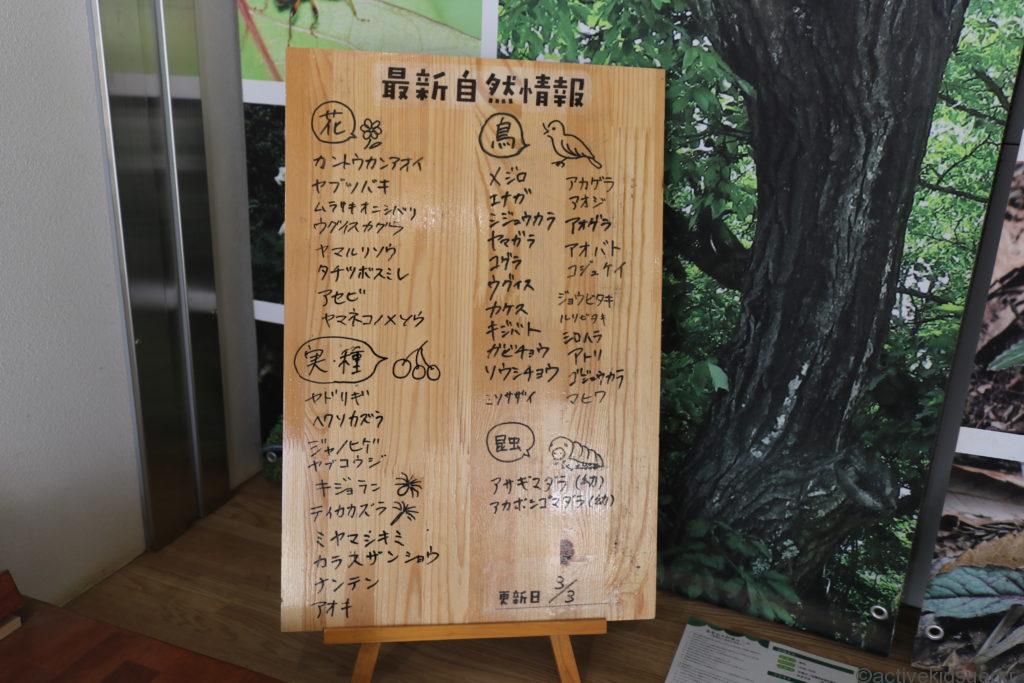 最新自然情報
花
カントウカンアオイ
ヤブツバキ
ムラサキオニシバリ
ウグイスカグラ
ヤマルリソウ
タチツボスミレ
アセビ
ヤマネコノメソウ
実・種
ヤドリギ
ヘクソカズラ
ジャノヒゲ
ヤブコウジ
キジョラン
テイカカズラ
ミヤマシキミ
カラスザンショウ
ナンテン
アオキ
鳥
メジロ
エナガ
シジュウカラ
ヤマガラ
コゲラ
ウグイス
カケス
キジバト
ガビチョウ
ソウシチョウ
ミソサザイ
アカゲラ
アオジ
アオゲラ
アオバト
コジュケイ
ジョウビタキ
ルリビタキ
シロハラ
アトリ
ゴジュウカラ
マヒワ
昆虫
アサギマダラ(幼)
アカボシゴマダラ(幼)
更新日 3/3